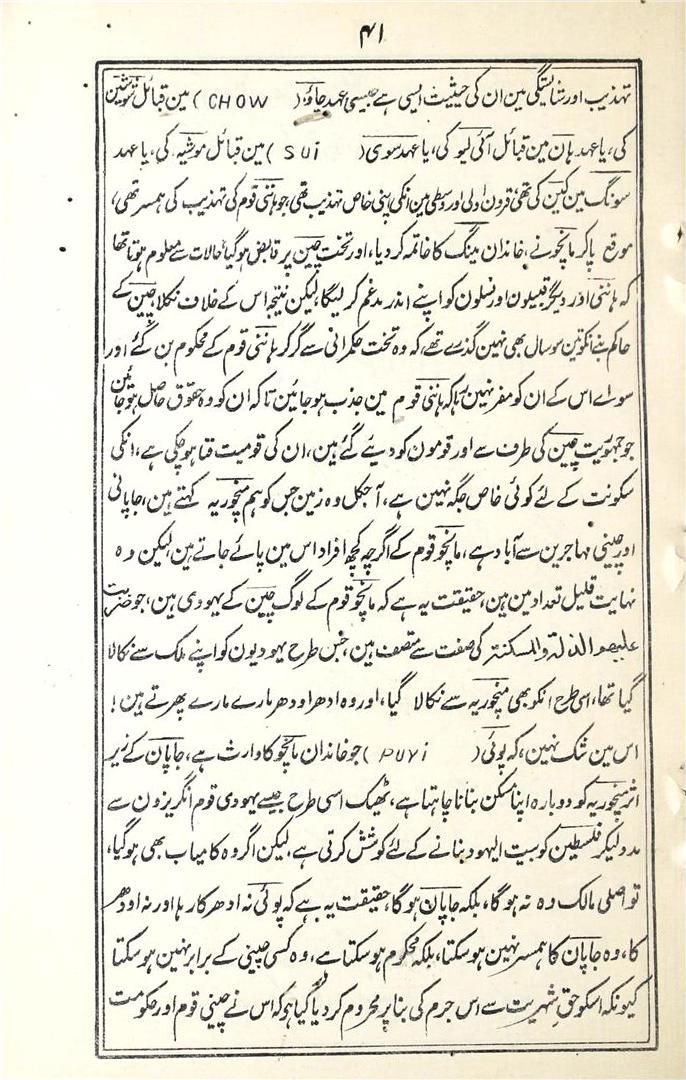 ۴۱
تہذیب اور شائستگی مین ان کی حیثیت ایسی ہے جیسی عہد چاؤ، (CHOW) مین قبائل
کی، یا عہد ہان مین قبائل آئی لیو کی، یا عہد سوی (SUi) مین قبائل موشیہ کی، یا عہد
سونگ مین کین کی تھی، قرون اولی اور وسطی مین انکی اپنی خاص تہذیب تھی، جو ہانئی قوم کی تہذیب کی ہمسر تھی،
موقع پاکر مانچو نے، خاندان مینگ کا خاتمہ کر دیا، اور تخت چین پر قابض ہو گیا، حالات سے معلوم ہوتا تھا
کہ ہانئی اور دیگر قبیلون اور نسلون کو اپنے اندر مدغم کر لیگا، لیکن نتیجہ اس کے خلاف نکلا، چین کے
حاکم بنے انکو تین سو سال بھی نہین گذرے تھے، کہ وہ تخت حکمرانی سے گر کر ہانئی قوم کے محکوم بن گئے اور
سواے اس کے ان کو مفر نہین رہا کہ ہانئی قوم مین جذب ہو جائین تاکہ ان کو وہ حقوق حاصل ہو جائین
جو جمہوریت چین کی طرف سے اور قومون کو دیئے گئے ہین، ان کی قومیت فنا ہو چکی ہے، انکی
سکونت کے لئے کوئی خاص جگہ نہین ہے، آجکل وہ زمین جس کو ہم منچوریہ کہتے ہین، جاپانی
اور چینی مہاجرین سے آباد ہے، مانچو قوم کے اگرچہ کچھ افراد اس مین پائے جاتے ہین لیکن وہ
نہایت قلیل تعداد مین ہین، حقیقت یہ ہے کہ مانچو قوم کے لوگ چین کے یہودی ہین، جو ضربت
علیہم الذلۃ والمسکنۃ کی صفت سے متصف ہین، جس طرح یہودیون کو اپنے ملک سے نکالا
گیا تھا، اسی طرح انکو بھی منچوریہ سے نکالا گیا، اور وہ ادھر اودھر مارے مارے پھرتے ہین!
اس مین شک نہین، کہ پوئی (PUYi) جو خاندان مانچو کا وارث ہے، جاپان کے زیر
اثر منچوریہ کو دوبارہ اپنا مسکن بنانا چاہتا ہے، ٹھیک اسی طرح جیسے یہودی قوم انگریزون سے
مدد لیکر فلسطین کو بیت الیہود بنانے کے لئے کوشش کرتی ہے، لیکن اگر وہ کامیاب بھی ہو گیا،
تو اصلی مالک وہ نہ ہو گا، بلکہ جاپان ہو گا، حقیقت یہ ہے کہ پوئی نہ ادھر کا رہا اور نہ اودھر
کا، وہ جاپان کا ہمسر نہین ہو سکتا، بلکہ محکوم ہو سکتا ہے، وہ کسی چینی کے برابر نہین ہو سکتا
کیونکہ اسکو حق شہریت سے اس جرم کی بنا پر محروم کر دیا گیا ہو کہ اس نے چینی قوم اور حکومت